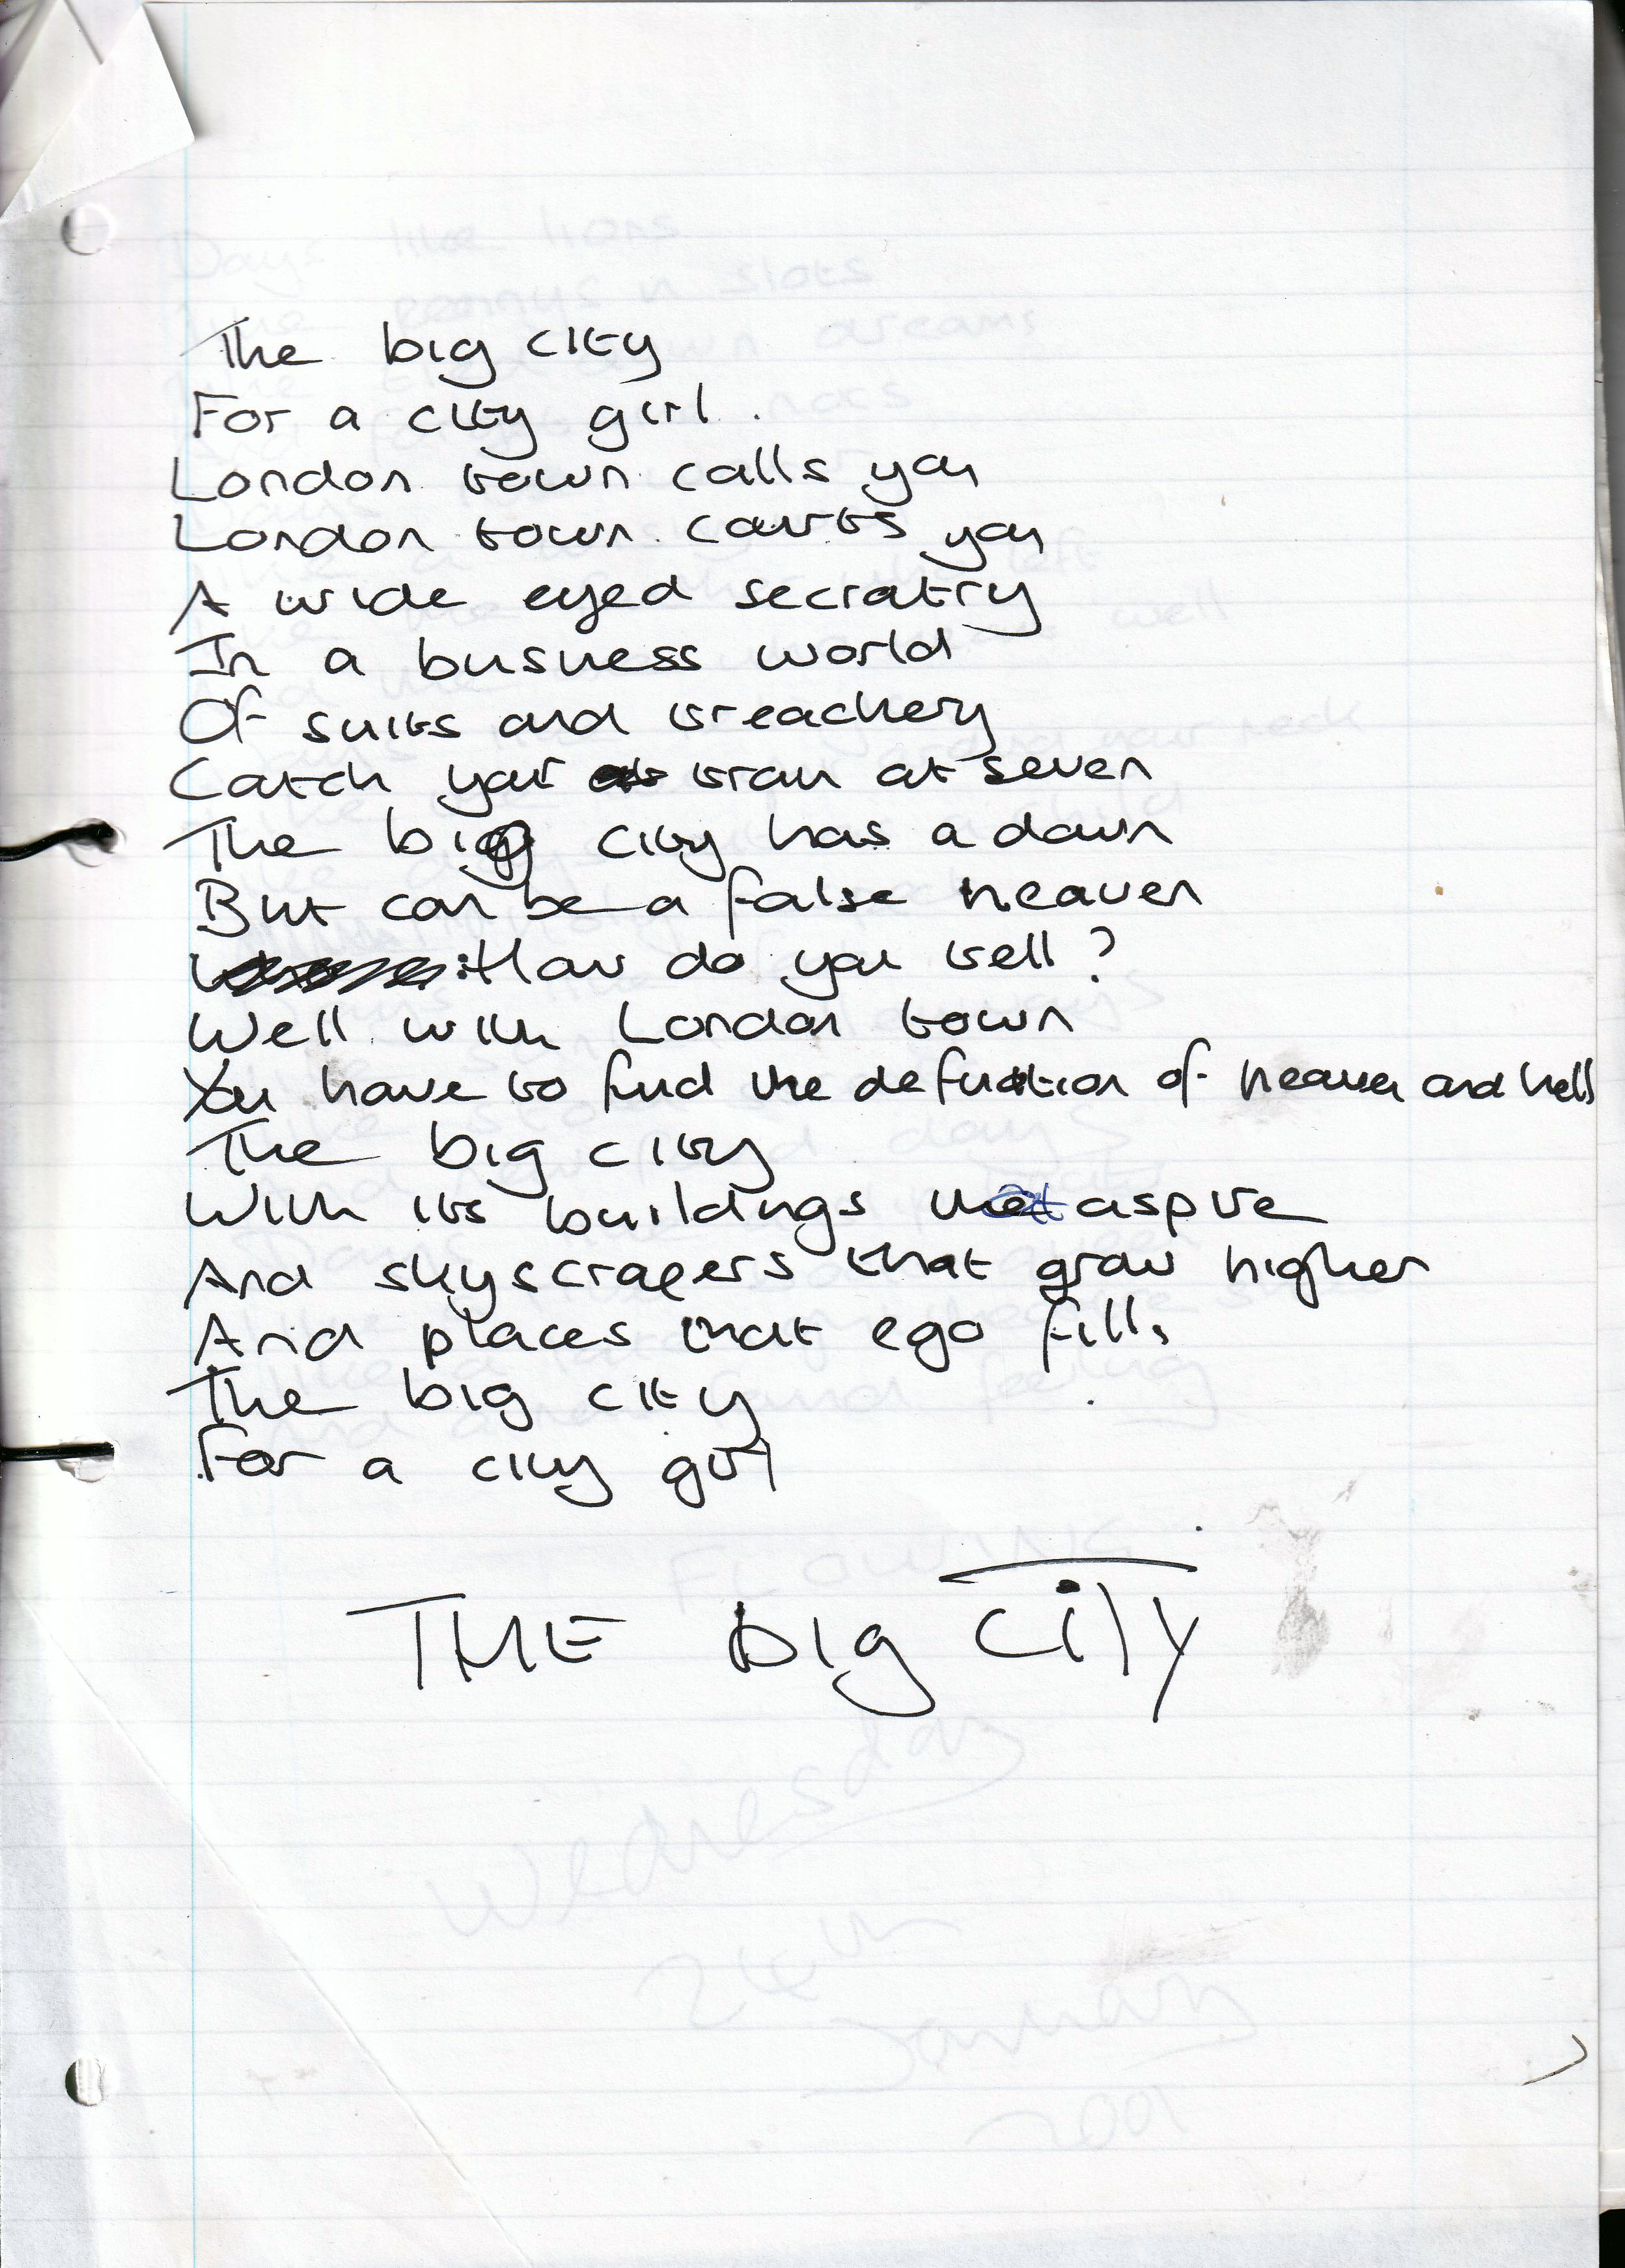 The big city
For a city girl.
London town calls you
London town courts you
A wide eyed secratry
In a busness world
Of suits and treachery
Catch your train at seven
The big city has a dawn
But can be a false heaven
How do you tell?
Well with London town
You have to find the defination of heaven and hell
The big city
With its buildings that aspire
And skyscrapers that grow higher
And places that ego fills
The big city
For a city girl
THE big CiTy
Wednesday
24th
January
2001